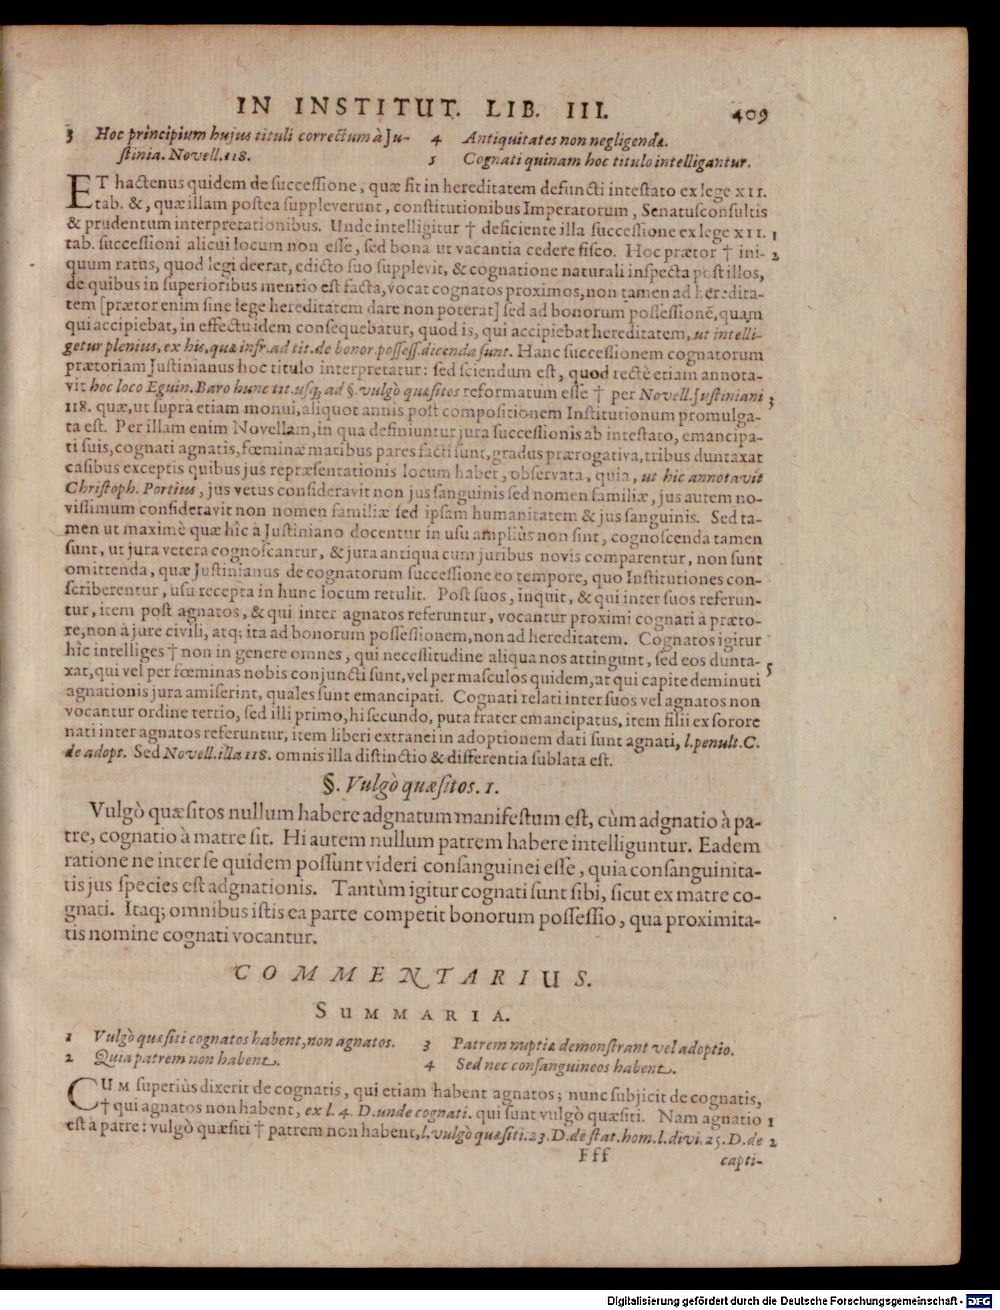 IN INSTITUT. LIB. III. 409
3 Hoc principium hujus tituli correctum à Ju-
stinia. Novell. 118.
4 Antiquitates non negligendæ.
5 Cognati quinam hoc titulo intelligantur.
ET hactenus quidem de successione, quæ fit in hereditatem defuncti intestato ex lege XII.
tab. &, quæ illam postea suppleverunt, constitutionibus Imperatorum, Senatusconsultis
& prudentum interpretationibus. Unde intelligitur † deficiente illa successione ex lege XII. 1
tab. successioni alicui locum non esse, sed bona ut vacantia cedere fisco. Hoc prætor † ini- 2
quum ratus, quod legi deerat, edicto suo supplevit, & cognatione naturali inspecta post illos,
de quibus in superioribus mentio est facta, vocat cognatos proximos, non tamen ad heredita-
tem [prætor enim sine lege hereditatem dare non poterat] sed ad bonorum possessionē, quam
qui accipiebat, in effectu idem consequebatur, quod is, qui accipiebat hereditatem, ut intelli-
getur plenius, ex his, quæ infr. ad tit. de bonor. possess. dicenda sunt. Hanc successionem cognatorum
prætoriam Justinianus hoc titulo interpretatur: sed sciendum est, quod rectè etiam annota-
vit hoc loco Eguin. Baro hunc tit. usq; ad §. vulgò quæsitos reformatum esse † per Novell. Justiniani 3
118. quæ, ut suprà etiam monui, aliquot annis post compositionem Institutionum promulga-
ta est. Per illam enim Novellam, in qua definiuntur jura successionis ab intestato, emancipa-
ti suis, cognati agnatis, fœminæ maribus pares facti sunt, gradus prærogativa, tribus duntaxat
casibus exceptis quibus jus repræsentationis locum habet, observata, quia, ut hic annotavit
Christoph. Portius, jus vetus consideravit non jus sanguinis sed nomen familiæ, jus autem no-
vissimum consideravit non nomen familiæ sed ipsam humanitatem & jus sanguinis. Sed ta-
men ut maximè quæ hîc à Justiniano docentur in usu ampliùs non sint, cognoscenda tamen
sunt, ut jura vetera cognoscantur, & jura antiqua cum juribus novis comparentur, non sunt
omittenda, quæ Justinianus de cognatorum successione eo tempore, quo Institutiones con-
scriberentur, usu recepta in hunc locum retulit. Post suos, inquit, & qui inter suos referun-
tur, item post agnatos, & qui inter agnatos referuntur, vocantur proximi cognati à præto-
re, non à jure civili, atq; ita ad bonorum possessionem, non ad hereditatem. Cognatos igitur
hîc intelliges † non in genere omnes, qui necessitudine aliqua nos attingunt, sed eos dunta- 5
xat, qui vel per fœminas nobis conjuncti sunt, vel per masculos quidem, at qui capite deminuti
agnationis jura amiserint, quales sunt emancipati. Cognati relati inter suos vel agnatos non
vocantur ordine tertio, sed illi primo, hi secundo, puta frater emancipatus, item filii ex sorore
nati inter agnatos referuntur, item liberi extranei in adoptionem dati sunt agnati, l. penult. C.
de adopt. Sed Novell. illa 118. omnis illa distinctio & differentia sublata est.
§. Vulgò quæsitos. 1.
Vulgò quæsitos nullum habere adgnatum manifestum est, cùm adgnatio à pa-
tre, cognatio à matre sit. Hi autem nullum patrem habere intelliguntur. Eadem
ratione ne inter se quidem possunt videri consanguinei esse, quia consanguinita-
tis jus species est adgnationis. Tantùm igitur cognati sunt sibi, sicut ex matre co-
gnati. Itaq; omnibus istis ea parte competit bonorum possessio, qua proximita-
tis nomine cognati vocantur.
COMMENTARIUS.
SUMMARIA.
1 Vulgò quæsiti cognatos habent, non agnatos.
2 Quia patrem non habent.
3 Patrem nuptiæ demonstrant vel adoptio.
4 Sed nec consanguineos habent.
CUM superiùs dixerit de cognatis, qui etiam habent agnatos; nunc subjicit de cognatis,
† qui agnatos non habent, ex l. 4. D. unde cognati. qui sunt vulgò quæsiti. Nam agnatio 1
est à patre: vulgò quæsiti † patrem non habent, l. vulgò quæsiti. 23. D. de stat. hom. l. divi. 25. D. de 2
Fff capti-
Digitalisierung gefördert durch die Deutsche Forschungsgemeinschaft - DFG